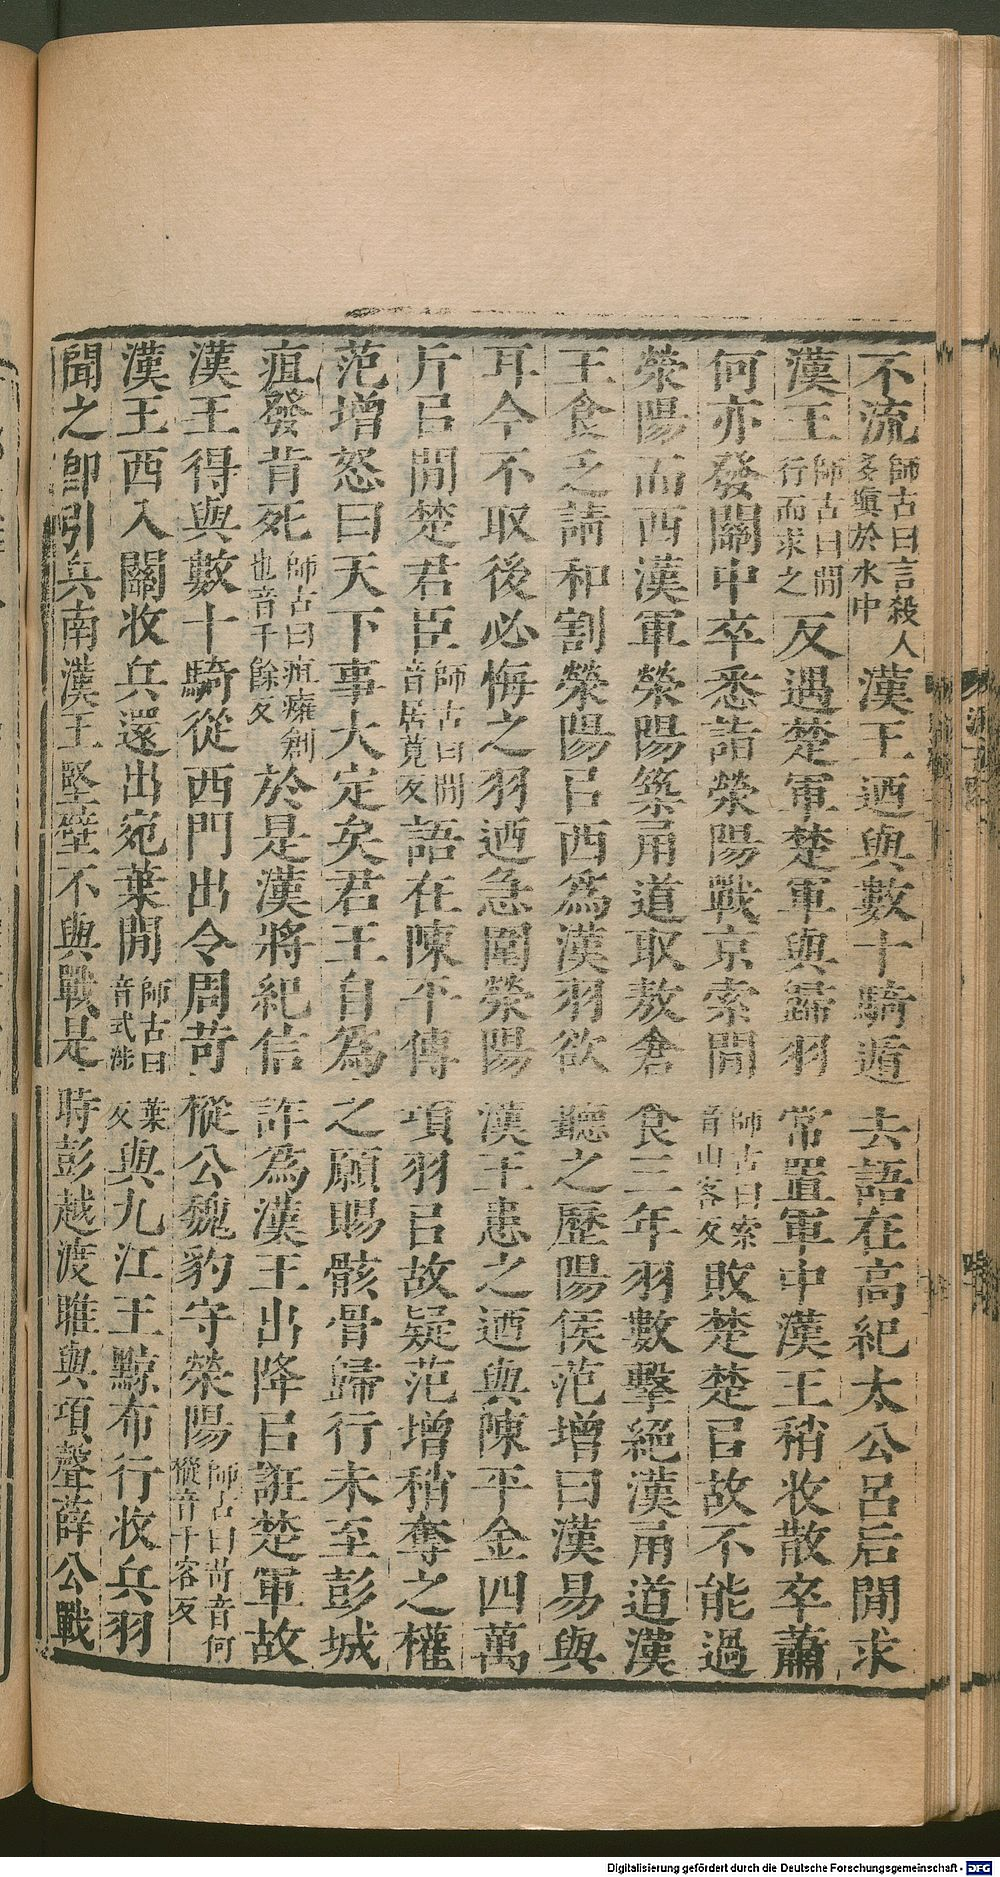 不流師古曰言殺人多塡於水中漢王迺與數十騎遁去語在高紀太公呂后閒求
漢王師古曰閒行而求之反遇楚軍楚軍與歸羽常置軍中漢王稍收散卒蕭
何亦發關中卒悉詣滎陽戰京索閒師古曰索音山客反敗楚楚㠯故不能過
滎陽而西漢軍滎陽築甬道取敖倉食三年羽數擊絕漢甬道漢
王食乏請和割滎陽㠯西爲漢羽欲聽之歷陽侯范增曰漢易與
耳今不取後必悔之羽迺急圍滎陽漢王患之迺與陳平金四萬
斤㠯閒楚君臣師古曰閒音居莧反語在陳平傳項羽㠯故疑范增稍奪之權
范增怒曰天下事大定矣君王自爲之願賜骸骨歸行未至彭城
疽發背死師古曰疽癰創也音千餘反於是漢將紀信詐爲漢王出降㠯誑楚軍故
漢王得與數十騎從西門出令周苛樅公魏豹守滎陽師古曰苛音何樅音千容反
漢王西入關收兵還出宛葉閒師古曰葉音式涉反與九江王黥布行收兵羽
聞之卽引兵南漢王堅壁不與戰是時彭越渡睢與項聲薛公戰
Digitalisierung gefördert durch die Deutsche Forschungsgemeinschaft - DFG